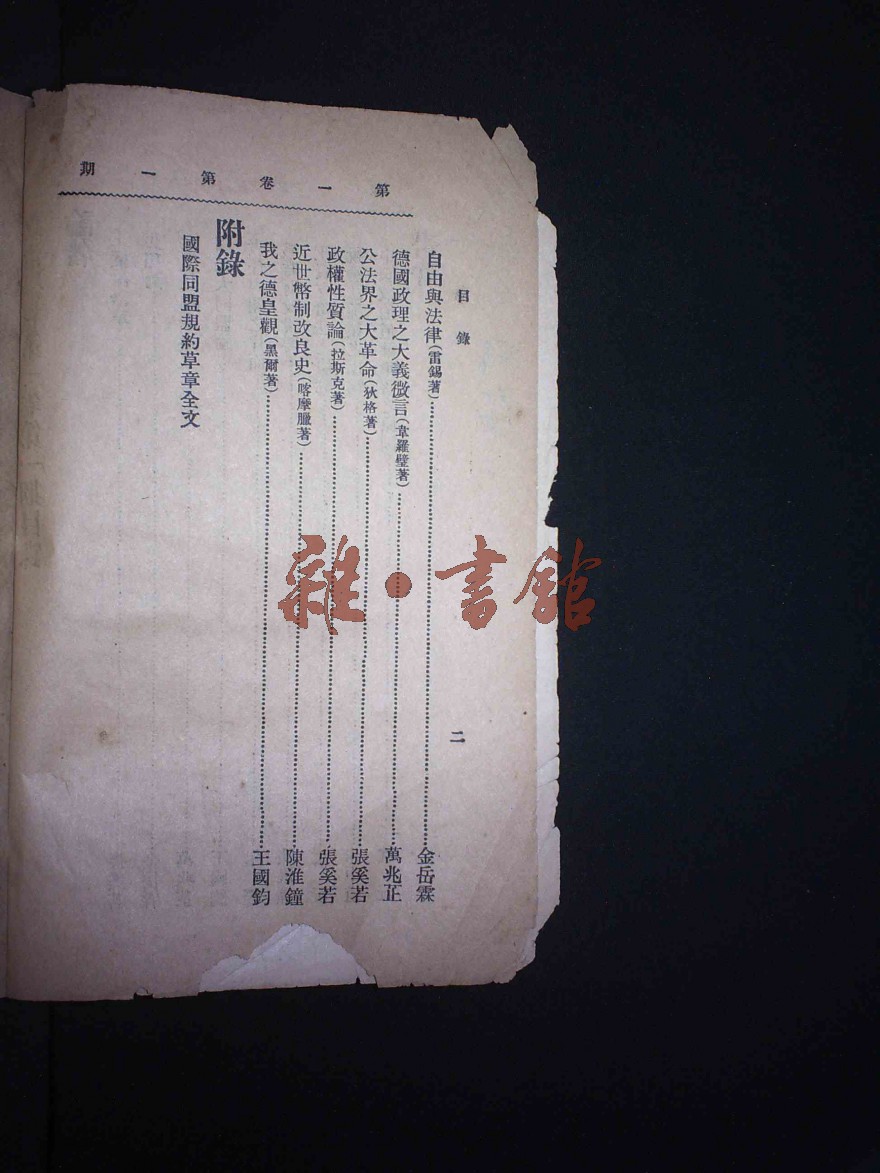 第一卷第一期
目錄 二
自由與法律（雷錫著）金岳霖
德國政理之大義微言（韋羅璧著）萬兆芷
公法界之大革命（狄格著）張奚若
政權性質論（拉斯克著）張奚若
近世幣制改良史（喀摩臘著）陳淮鐘
我之德皇觀（黑爾著）王國鈞
附錄
國際同盟規約草章全文
雜·書館